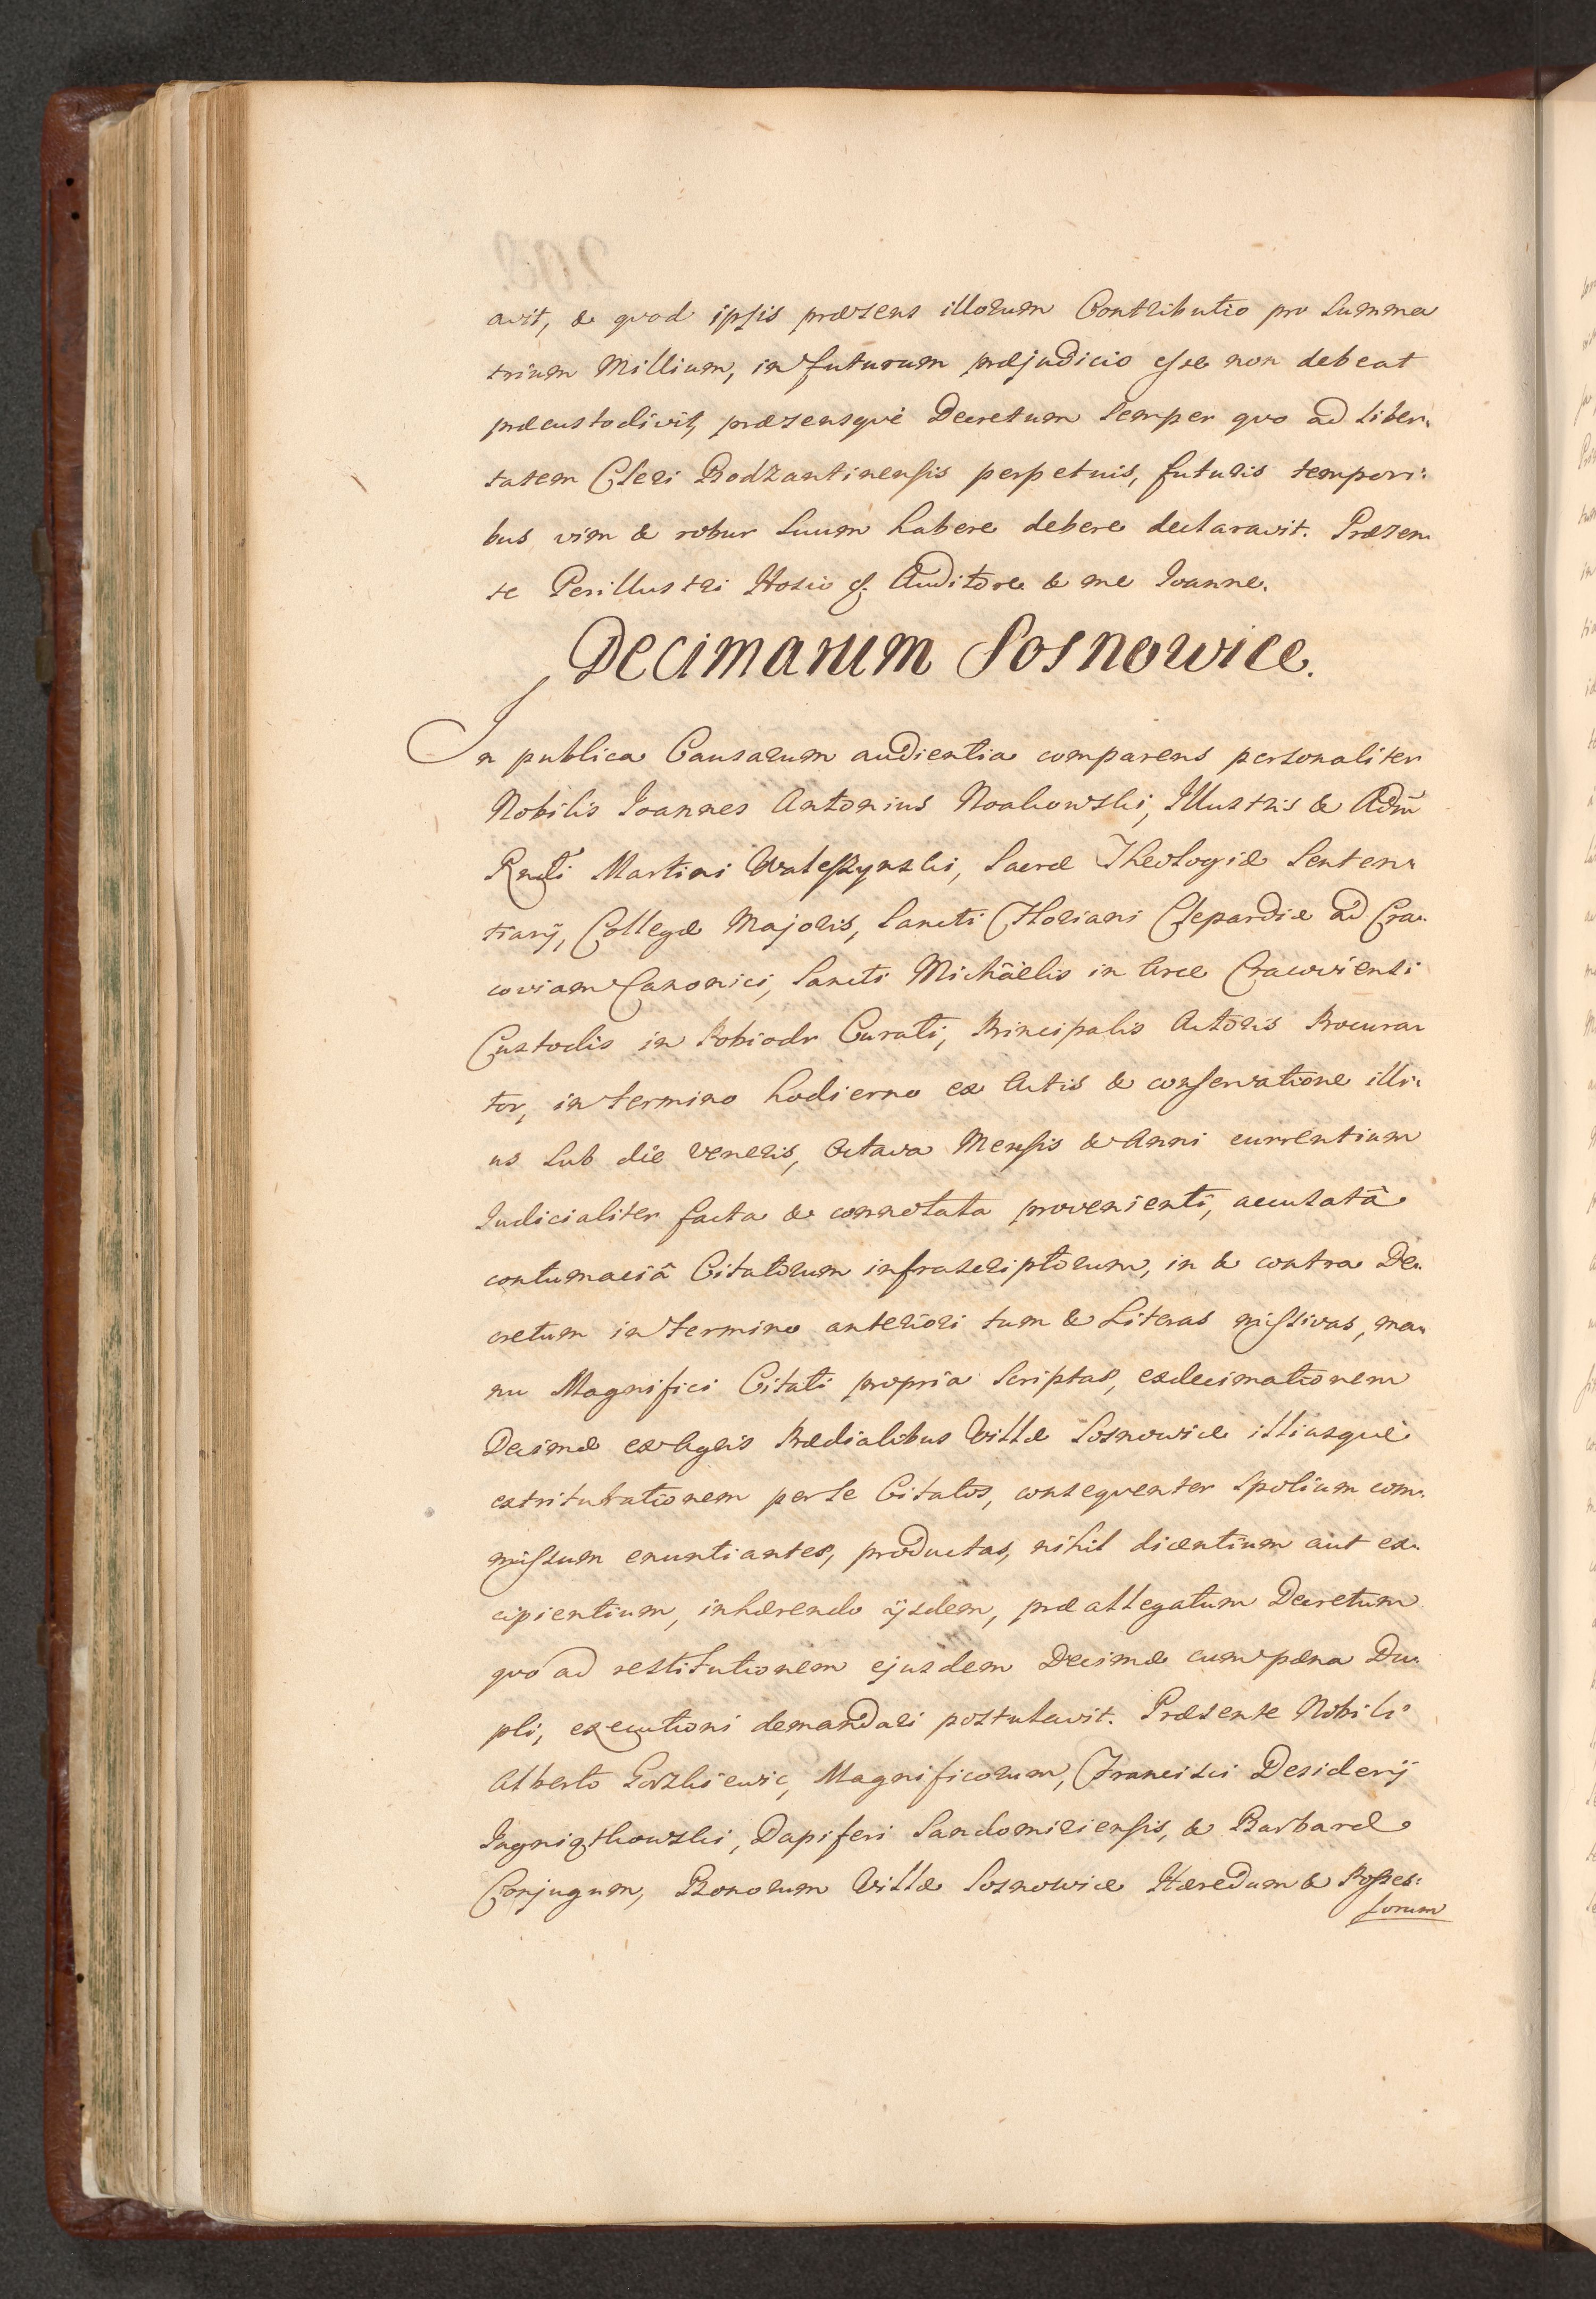 avit, & quod ipsis præsens illorum Contributio pro summa
trium Millium, in futurum præjudicio esse non debeat
præcustodivit, præsensquè Decretum semper quo ad liber:
tatem Cleri Bodzantinensis perpetuis, futuris tempori:
bus vim & robur suum habere debere declaravit. Præsen:
te Perillustri Hosio &. Auditore & me Joanne.
Decimarum Sosnowice.
In publica Causarum audientia comparens personaliter
Nobilis Joannes Antonius Noakowski, Illustris & Adm̃
Rndi Martini Waleszynski, Sacræ Theologiæ Senten:
tiarij, Collegæ Majoris, Sancti Floriani Clepardiæ ad Cra:
coviam Canonici, Sancti Michäelis in Arce Cracoviensi
Custodis in Pobiedr Curati, Principalis Actoris Procura:
tor, in termino hodierno ex Actis & conservatione illi:
us sub die Veneris, Octava Mensis & Anni currentium
Judicialiter facta & connotata provenienti, accusatâ
contumaciâ Citatorum infrascriptorum, in & contra De:
cretum in termino anteriori tum & Literas missivas, ma:
nu Magnifici Citati propria scriptas, exdecimationem
Decimæ ex Agris Prædialibus Villæ Sosnowice illiusquè
extriturationem per se Citatos, consequenter spolium com:
missum enuntiantes, productas, nihil dicentium aut ex:
cipientium, inhærendo ijsdem, præallegatum Decretum
quo ad restitutionem ejusdem Decimæ cum pæna Du:
pli, executioni demandari postulavit. Præsente Nobili
Alberto Magnificorum, Francisci Desiderij
Dapiferi Sandomiriensis, & Barbaræ
Conjugum, Bonorum Villæ Sosnowice Hæredum & Posses:
sorum